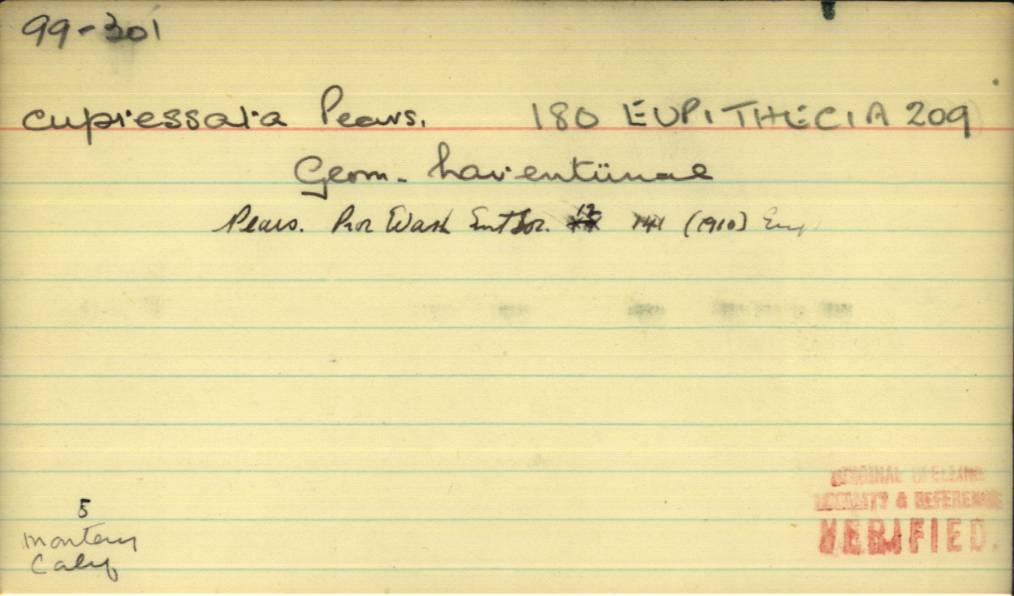 99-301
cupressata Pears. 180 EUPITHECIA 209
Geom. larentiinae
Pears. Proc Wash Ent Soc. 12 141 (1910) Eup
ORIGINAL SPELLING
LOCALITY & REFERENCE
VERIFIED.
5
Monterey
Calif